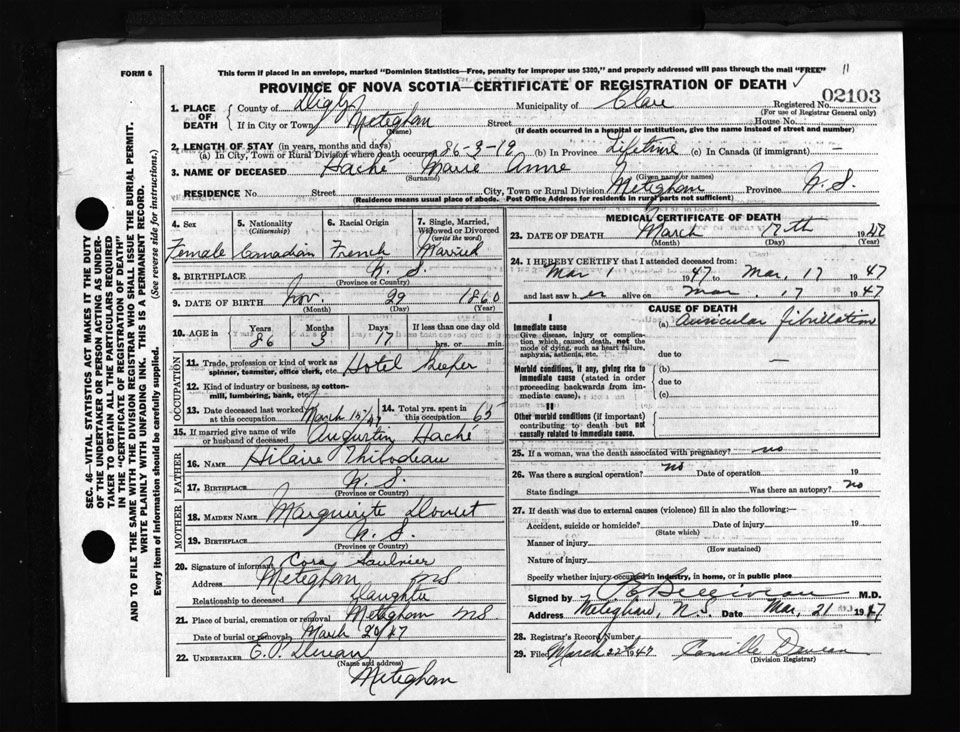 FORM 6
This form if placed in an envelope, marked "Dominion Statistics—Free, penalty for improper use $300," and properly addressed will pass through the mail "FREE"
11
PROVINCE OF NOVA SCOTIA—CERTIFICATE OF REGISTRATION OF DEATH
1. PLACE OF DEATH
County of Digby Municipality of Clare Registered No. 02103
(For use of Registrar General only)
If in City or Town Meteghan Street House No.
(Name) (If death occurred in a hospital or institution, give the name instead of street and number)
2. LENGTH OF STAY (in years, months and days)
(a) In City, Town or Rural Division where death occurred 86-3-19 (b) In Province Lifetime (c) In Canada (if immigrant) —
3. NAME OF DECEASED Haché Marie Anne
(Surname) (Given name or names)
RESIDENCE No. Street City, Town or Rural Division Meteghan Province N. S.
(Residence means usual place of abode. Post Office Address for residents in rural parts not sufficient)
4. Sex Female
5. Nationality (Citizenship) Canadian
6. Racial Origin French
7. Single, Married, Widowed or Divorced (write the word) Married
8. BIRTHPLACE N. S.
(Province or Country)
9. DATE OF BIRTH Nov. 29 1860
(Month) (Day) (Year)
10. AGE in Years Months Days If less than one day old
86 3 17 hrs. or min.
OCCUPATION
11. Trade, profession or kind of work as spinner, teamster, office clerk, etc. Hotel Keeper
12. Kind of industry or business, as cotton-mill, lumbering, bank, etc.
13. Date deceased last worked at this occupation March 15/47
14. Total yrs. spent in this occupation 65
15. If married give name of wife or husband of deceased Augustin Haché
FATHER
16. NAME Hilaire Thibodeau
17. BIRTHPLACE N. S.
(Province or Country)
MOTHER
18. MAIDEN NAME Marguerite Doucet
19. BIRTHPLACE N. S.
(Province or Country)
20. Signature of informant Cora Saulnier
Address Meteghan NS
Relationship to deceased Daughter
21. Place of burial, cremation or removal Meteghan NS
Date of burial or removal March 20/47
22. UNDERTAKER
(Name and address)
Meteghan
MEDICAL CERTIFICATE OF DEATH
23. DATE OF DEATH March 17th 1947
(Month) (Day) (Year)
24. I HEREBY CERTIFY that I attended deceased from:
Mar 1 1947 to Mar. 17 1947
and last saw her alive on Mar. 17 1947
CAUSE OF DEATH
I
Immediate cause
Give disease, injury or complication, which caused death, not the mode of dying, such as heart failure, asphyxia, asthenia, etc.
(a) Auricular fibrillation
due to —
Morbid conditions, if any, giving rise to immediate cause (stated in order proceeding backwards from immediate cause).
(b)
due to
(c)
II
Other morbid conditions (if important) contributing to death but not causally related to immediate cause.
25. If a woman, was the death associated with pregnancy? no
26. Was there a surgical operation? no Date of operation 19
State findings Was there an autopsy? no
27. If death was due to external causes (violence) fill in also the following:—
Accident, suicide or homicide? Date of injury 19
(State which)
Manner of injury
(How sustained)
Nature of injury
Specify whether injury occurred in industry, in home, or in public place
Signed by M.D.
Address Meteghan, N.S. Date Mar, 21 1947
28. Registrar's Record Number
29. Filed March 22nd 1947 Camille
(Division Registrar)
SEC. 46—VITAL STATISTICS ACT MAKES IT THE DUTY
OF THE UNDERTAKER OR PERSON ACTING AS UNDER-
TAKER TO OBTAIN ALL THE PARTICULARS REQUIRED
IN THE "CERTIFICATE OF REGISTRATION OF DEATH"
AND TO FILE THE SAME WITH THE DIVISION REGISTRAR WHO SHALL ISSUE THE BURIAL PERMIT.
WRITE PLAINLY WITH UNFADING INK. THIS IS A PERMANENT RECORD.
Every item of information should be carefully supplied. (See reverse side for instructions.)